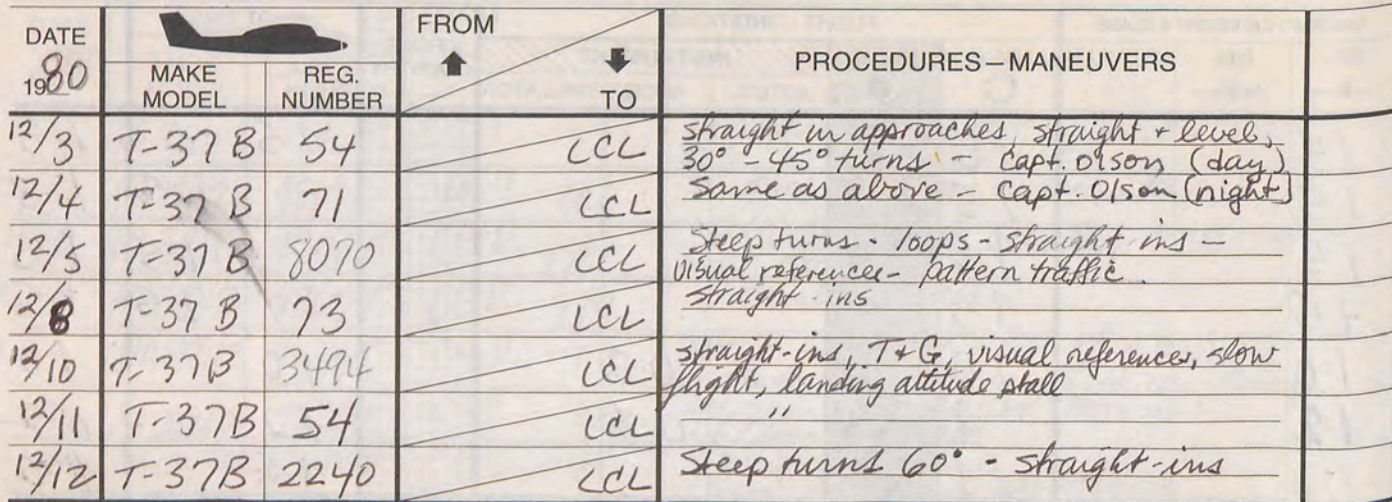 DATE FROM
1980 MAKE MODEL REG. NUMBER TO PROCEDURES—MANEUVERS
12/3 T-37B 54 LCL straight in approaches, straight + level,
30° - 45° turns - Capt. Olson (day)
12/4 T-37B 71 LCL Same as above - Capt. Olson (night)
12/5 T-37B 8070 LCL Steep turns - loops - straight-ins -
visual references - pattern traffic
12/8 T-37B 73 LCL straight-ins
12/10 T-37B 3494 LCL straight-ins, T+G, visual references, slow
flight, landing attitude stall
12/11 T-37B 54 LCL "
12/12 T-37B 2240 LCL Steep turns 60° - straight-ins